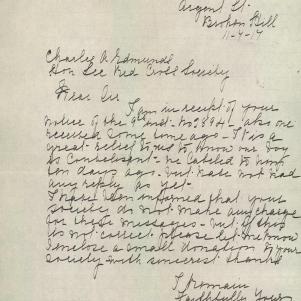 Argent St.
Broken Hill
11-4-17
Charles A Edmunds
Hon Sec Red Cross Society
Dear Sir
I am in receipt of your
notice of the 9 inst - No 9894 - also one
received some time ago - It is a
great relief to us to know our Boy
is Convelesent - we Cabeled to him
ten days ago - but have not had
any reply as yet -
I have been informed that your
society do not make any charge
for these messages - but if this
is not correct please let me know
I enclose a small donation to your
Society with sincerest thanks
I remain
Faithfully Yours